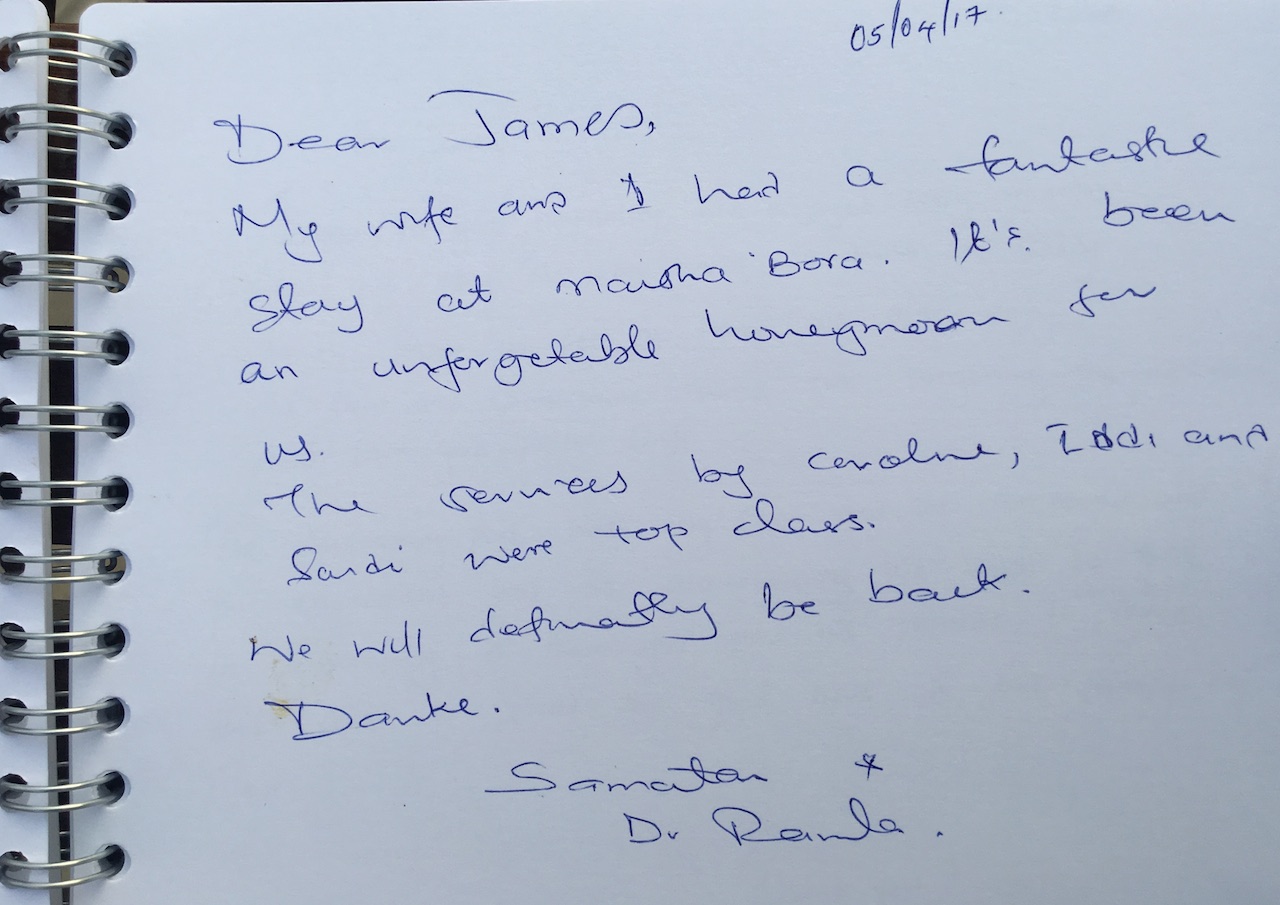 05/04/17.
Dear James,
My wife and I had a fantastic
stay at Maisha Bora. It's been
an unforgetable honeymoon for
us.
The services by Caroline, Iddi and
Saidi were top class.
We will definatly be back.
Danke.
Samatar &
Dr Ramla.